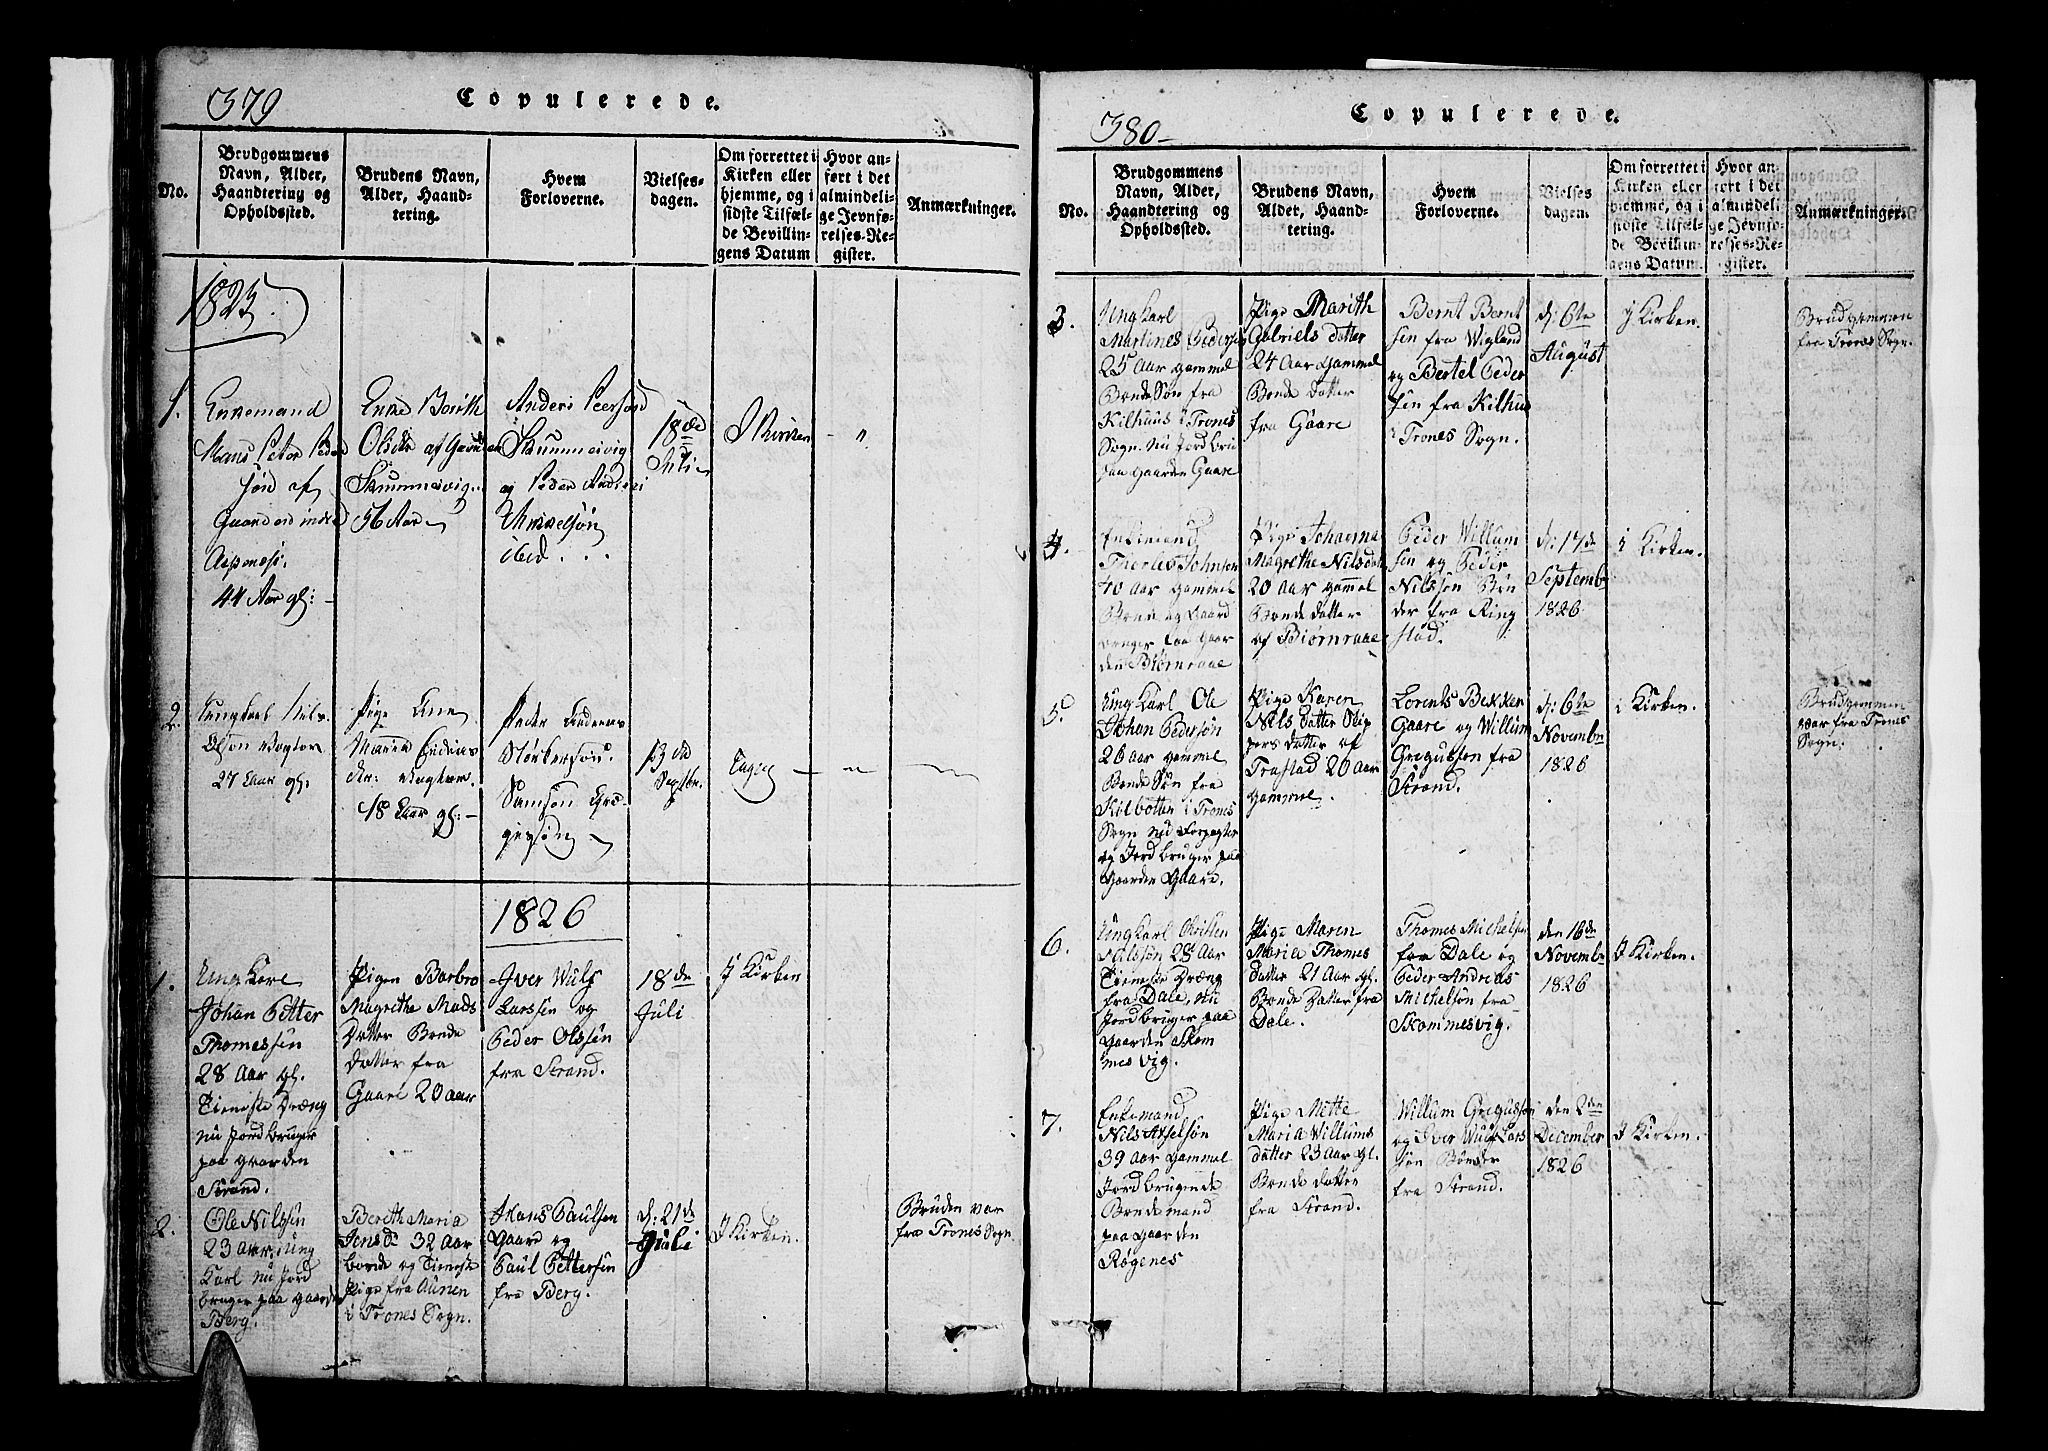 379
Copulerede.
No.
Brudgommens
Navn, Alder,
Haandtering og
Opholdssted.
Brudens Navn,
Alder, Haand-
tering.
Hvem
Forloverne.
Vielses-
dagen.
Om forrettet i
Kirken eller
hjemme, og i
sidste Tilfæl-
de Bevillin-
gens Datum
Hvor an-
ført i det
almindeli-
ge Jevnfø-
relses-Re-
gister.
Anmærkninger.
1.
Enkemand
Hans Peter Peder
sön af
Gaarden indre
44 Aar gl:
Enke Berith
af Gaarden
56 Aar
Anders Peersön
og Peder Anders
ibid
18de
Juli
I Kirken
"
2.
Ungkarl Nils
Olsön
27 Aar gl.
Pige Ane
Maria
18 Aar gl:
Peder Andreas
Størkersön.
Samsön Gre-
gersön
13de
Septbr.
1826
1.
Ung Karl
Johan Petter
Thomessen
28 Aar gl.
Tieneste Dræng
nu Jord bruger
paa Gaarden
Strand.
Pigen Barbro
Magrethe Mads
Datter Bonde
Datter fra
Gaare 20 aar
Iver Wulf
Larssen og
Peder Olssen
fra Strand.
18de
Juli
I Kirken
2.
Ole Nilssen
23 aar, ung
Karl nu Jord
bruger paa Gaarden
Berg.
Berith Maria
Jensd. 32 Aar
Bonde og Tieneste
Pige fra Aunen
i Trones Sogn.
Hans Paulsen
Gaare og
Paul Pettersen
fra Berg.
d: 21de
Juli
I Kirken.
Bruden var
fra Trones Sogn
380
Copulerede.
No.
Brudgommens
Navn, Alder,
Haandtering og
Opholdssted.
Brudens Navn,
Alder, Haand-
tering.
Hvem
Forloverne.
Vielses
dagen.
Om forrettet i
Kirken eller
hjemme, og i
sidste Tilfæl-
de Bevillin-
gens Datum
Hvor an-
ført i det
almindeli-
ge Jevnfø-
relses-Re-
gister.
Anmærkninger.
3.
Ung Karl
Martines Peders
25 Aar gammel
Bonde Søn fra
Kilhuus i Trones
Sogn. nu Jord bru
paa Gaarden Gaare
Pige Marith
Gabriels datter
24 Aar gammel
Bonde datter
fra Gaare
Bernt Bernt
sen fra Wigland
og Bertel Peder
sen fra Kilhus
i Trones Sogn.
d: 6te
August
I Kirken.
Brudgommen
fra Trones Sogn.
4.
Enkemand
Therles Johnsen
40 Aar gammel
Bonde og Gaard
bruger paa Gaar
den Biørnraae
Pige Johanna
Magrethe Nilsdat
20 Aar gammel
Bonde datter
af Biørnraae
Peder Willum
sen og Peder
Nilssen Bøn
der fra Ring
stad.
d: 17de
Septemb
1826
i Kirken.
5.
Ung Karl Ole
Johan Pedersøn
26 aar gammel
Bonde Søn fra
Kilbotten i Trones
Sogn nu Forpagter
og Jord bruger paa
Gaarden Gaare.
Pige Karen
Nils Datter Skip
pers datter af
Trastad 20 aar
gammel.
Lorents Bekker
Gaare og Willum
Gregussen fra
Strand.
d: 6te
Novembr
1826
i Kirken.
Brudgommen
var fra Trones
Sogn.
6.
Ung Karl Christen
Nilssøn 28 Aar
Tieneste Dræng
fra Dale, nu
Jord bruger paa
Gaarden Skom
mesvig.
Pige Maren
Maria Thomes
datter 21 Aar gl.
Bonde Datter fra
Dale.
Thomes Michelsen
fra Dale og
Peder Andreas
Michelsøn fra
Skommesvig.
den 16de
Novembr
1826
I Kirken.
7.
Enkemand
Nils Axelsøn
39 aar gammel
Jord brugende
Bondemand
paa Gaarden
Røgenes
Pige Mette
Maria Willums
datter 23 Aar gl.
Bonde datter
fra Strand.
Willum Gregussen
og Iver Wulf Lars
søn Bønder
fra Strand.
den 2den
December
1826
I Kirken.